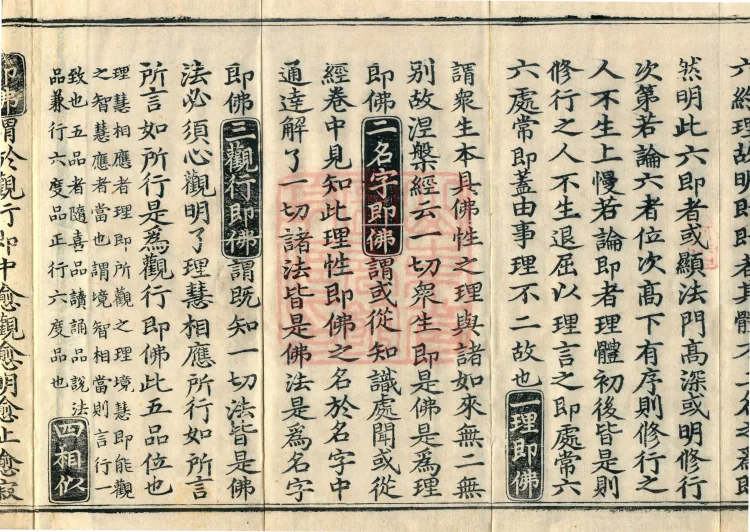 理故明即即者其體不
然明此六即者或顯法門髙深或明修行
次第若論六者位次髙下有序則修行之
人不生上慢若論即者理體初後皆是則
修行之人不生退屈以理言之即處常六
六處常即蓋由事理不二故也一理即佛
謂衆生本具佛性之理與諸如來無二無
別故涅槃經云一切衆生即是佛是爲理
即佛二名字即佛謂或從知識處聞或從
經卷中見知此理性即佛之名於名字中
通達解了一切諸法皆是佛法是爲名字
即佛三觀行即佛謂既知一切法皆是佛
法必須心觀明了理慧相應所行如所言
所言如所行是爲觀行即佛此五品位也
理慧相應者理即所觀之理境慧即能觀
之智慧應者當也謂境智相當則言行一
致也五品者隨喜品讀誦品說法
品兼行六度品正行六度品也
四相似
即佛謂於觀行即中愈觀愈明愈止愈寂